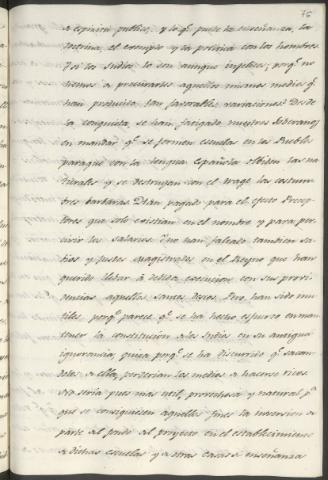 76
la opinion publica, y lo q.e puede la enseñanza, la
doctrina, el exemplo y la policia con los hombres.
Por los Indios, lo son aunque infelices; porq.e no
hemos á procurarles aquellos mismos medios q.e
han producido tan favorables variaciones? Desde
la conquista se han fatigado nuestros Soberanos
en mandar q.e se formen escuelas en los Pueblos
paraque con la lengua Española olbiden las na-
turales y se destruyan con el trage las costum-
bres barbaras. Dean, pagado para el efecto Precep-
tores que solo existian en el nombre y para per-
civir los salarios. No han faltado tambien sa-
bios y Justos magistrados en el Reyno que han
querido llebar á debida execucion con sus provi-
dencias aquellos santos deseos. Pero han sido inu-
tiles, porq.e parece q.e se ha hecho esfuerzo en man-
tener la constitucion de los Indios en su antigua
ignorancia, quiza porq.e se ha discurrido q.e sacan-
dolos de ella, perderian los medios de hacerse ricos.
Otra seria pues mas util, provechosa y natural p.a
q.e se consiguiesen aquellos fines la inversion de
parte del fondo del proyecto en el establecimiento
de dichas escuelas y de otras casas de enseñanza